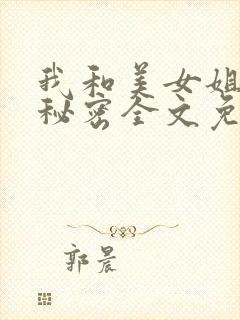 我和美女姐
秘密全文免
郭晨